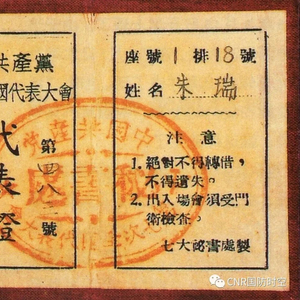 共產黨
國代表大會
代表證
第四八二號
座號1排18號
姓名 朱瑞
注意
1.絕對不得轉借，
不得遺失。
2.出入場會須受門
衛檢查。
七大祕書處製
CNR国防时空